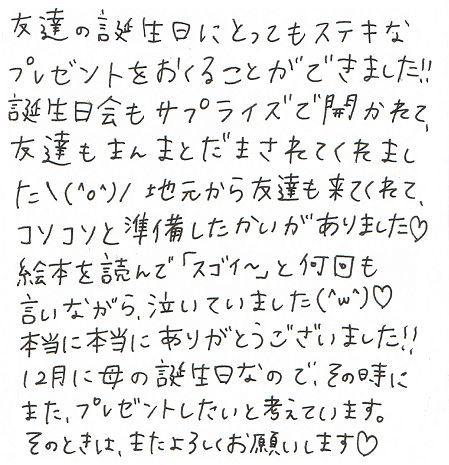 友達の誕生日にとってもステキな
プレゼントをおくることができました!!
誕生日会もサプライズで開かれて、
友達もまんまとだまされてくれまし
た\(^o^)/ 地元から友達も来てくれて、
コソコソと準備したかいがありました♡
絵本を読んで「スゴイ〜」と何回も
言いながら、泣いていました(^w^)♡
本当に本当にありがとうございました!!
12月に母の誕生日なので、その時に
また、プレゼントしたいと考えています。
そのときは、またよろしくお願いします♡